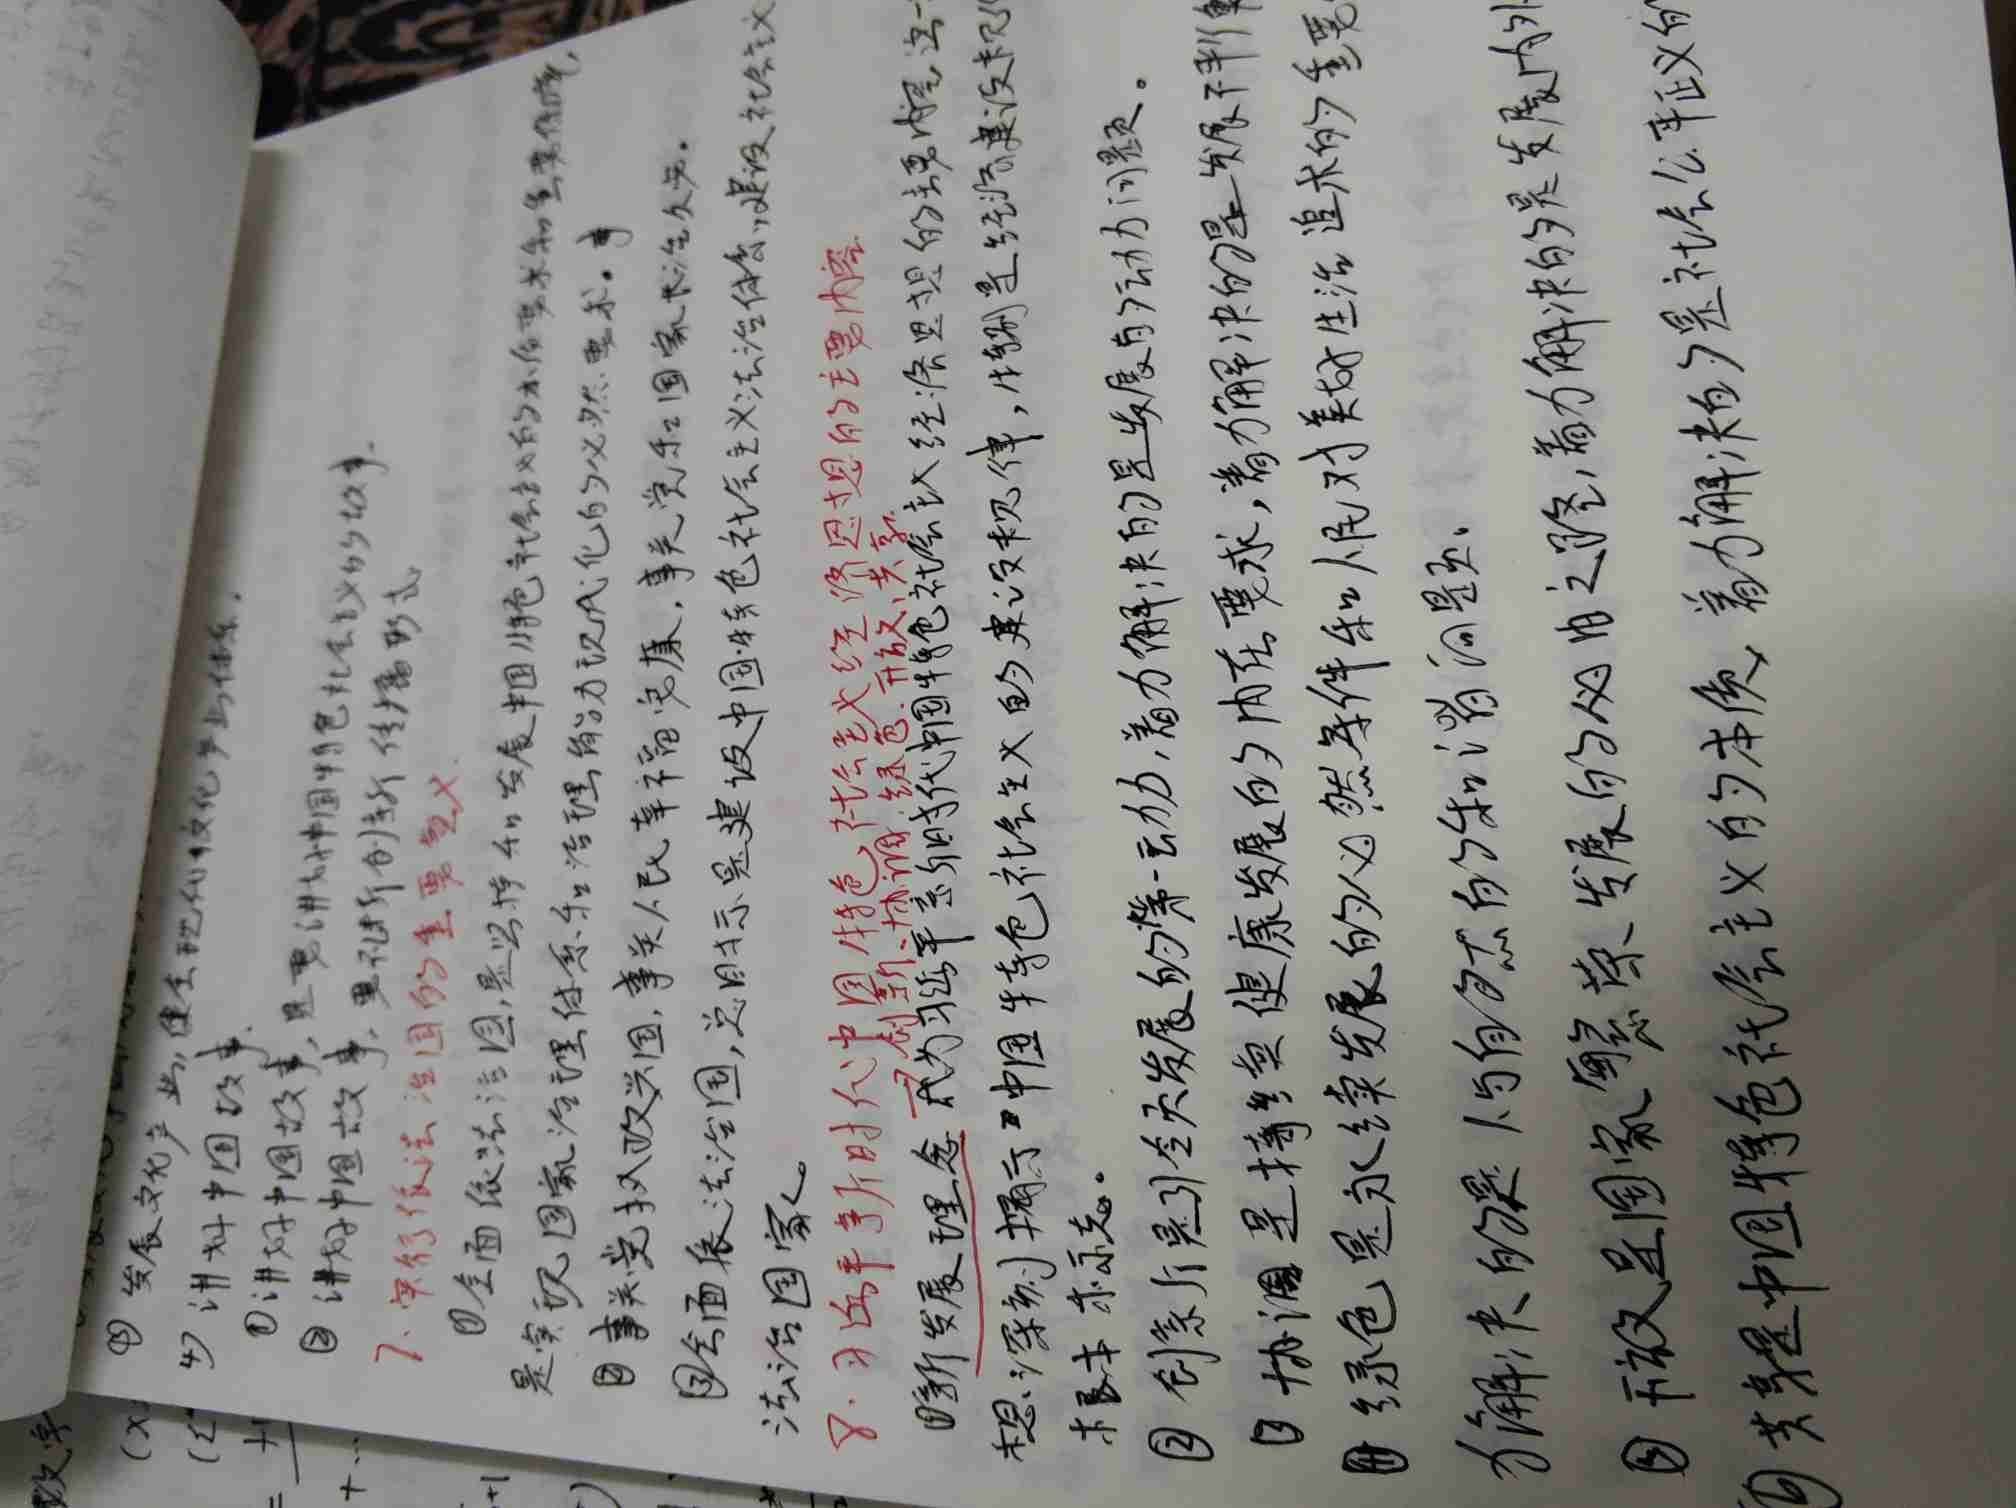 ④ 发展文化产业,健全现代文化产业体系.
4) 讲好中国故事.
①讲好中国故事,是要讲好中国特色社会主义的故事.
②讲好中国故事,要推行创新传播形式
7.实行依法治国的重要意义.
①全面依法治国,是坚持和发展中国特色社会主义的本质要求和重要保障,
是实现国家治理体系和治理能力现代化的必然要求。事
②事关党执政兴国,事关人民幸福安康,事关党和国家长治久安。
③全面依法治国,总目标是建设中国特色社会主义法治体系,建设社会主义
法治国家。
8.习近平新时代中国特色社会主义经济思想的主要内容.
创新、协调、绿色、开放、共享.
①新发展理念成为习近平新时代中国特色社会主义经济思想的主要内容,这
想.深刻揭示了中国特色社会主义的建设规律,特别是经济建设规
根本标志。
②创新是引领发展的第一动力,着力解决的是发展的动力问题。
③协调是持续健康发展的内在要求,着力解决的是发展不平衡
④绿色是永续发展的必然条件和人民对美好生活追求的重要
力解决的是人与自然的和谐问题.
⑤开放是国家繁荣发展的必由之路,着力解决的是发展内外
⑥共享是中国特色社会主义的本质,着力解决的是社会公平正义的
数学